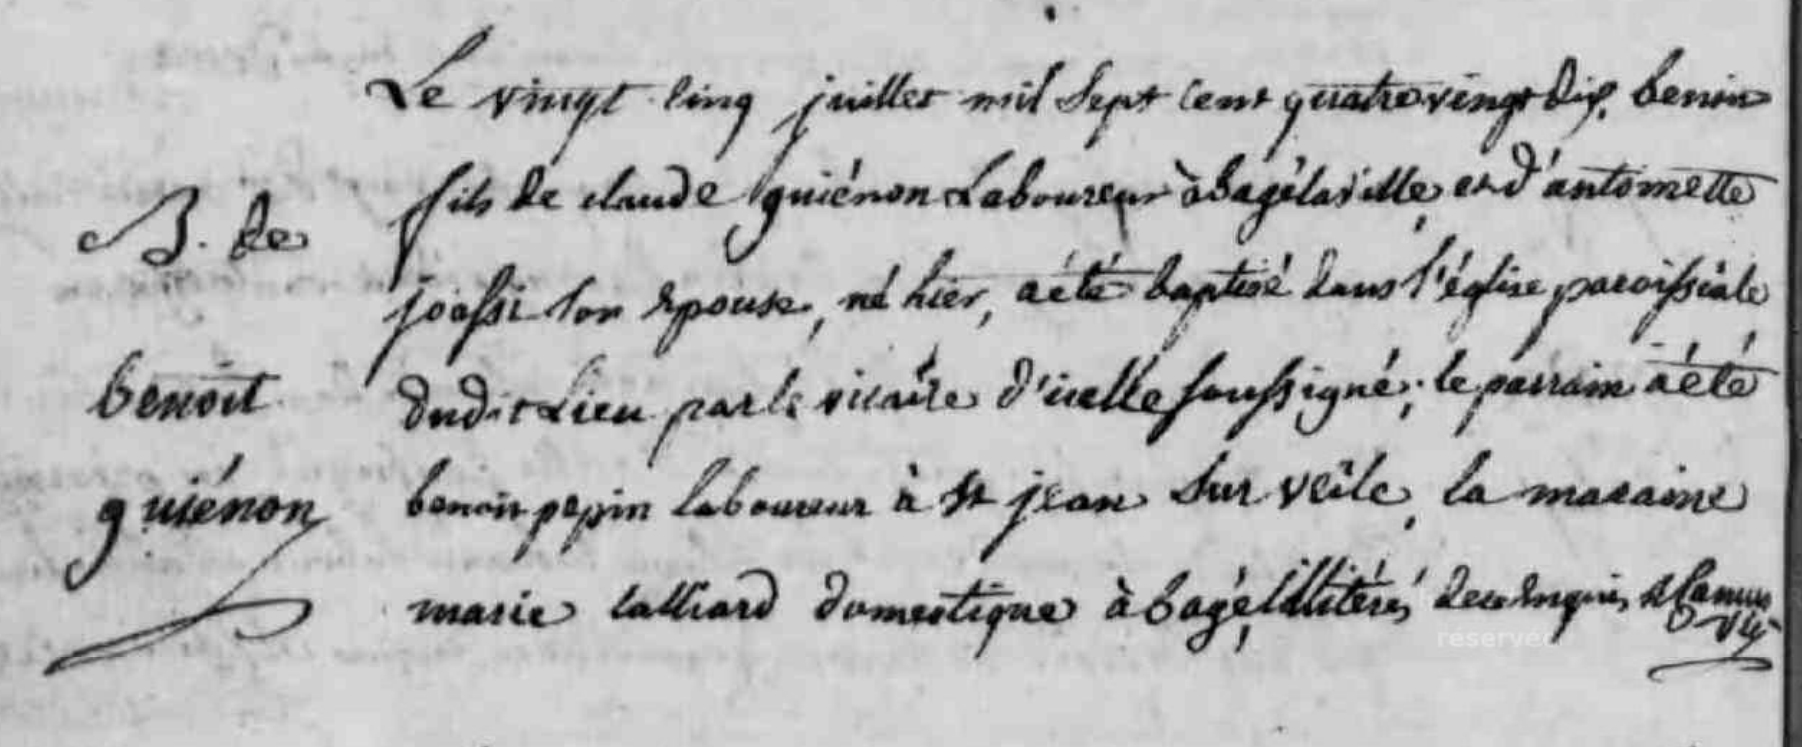 Le vingt cinq juillet mil sept cent quatre vingt dix, benoit
fils de claude guiénon Laboureur à bagé la ville, et d'antoinette
B. de
joassi son epouse, né hier, a été baptisé dans l'église paroissiale
benoit
dudit Lieu par le vicaire d'icelle soussigné; le parrain a été
guiénon
benoit pepin laboureur à St jean sur veile, la maraine
marie talliard domestique à bagé, illitérés de ce enquis
reserved